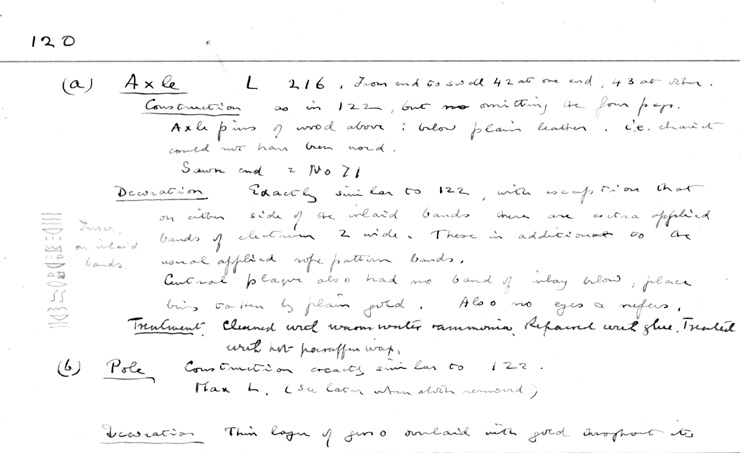 120
(a) Axle L 216. From end to swell 42 at one end, 43 at other.
Construction as in 122, but omitting the four pegs.
Axle pins of wood above: below plain leather. i.e. chariot
could not have been used.
Sawn end = No 71
Decoration Exactly similar to 122, with exception that
on either side of the inlaid bands there are extra applied
bands of electrum 2 wide. These in addition to the
usual applied rope pattern bands.
Inscr. on inlaid bands.
Central plaque also had no band of inlay below, place
being taken by plain gold. Also no eyes & nefers.
Treatment. Cleaned with warm water & ammonia. Repaired with glue. Treated
with hot paraffin wax.
(b) Pole Construction exactly similar to 122.
Max L. (see later when cloth removed)
Decoration Thin layer of gesso overlaid with gold throughout its